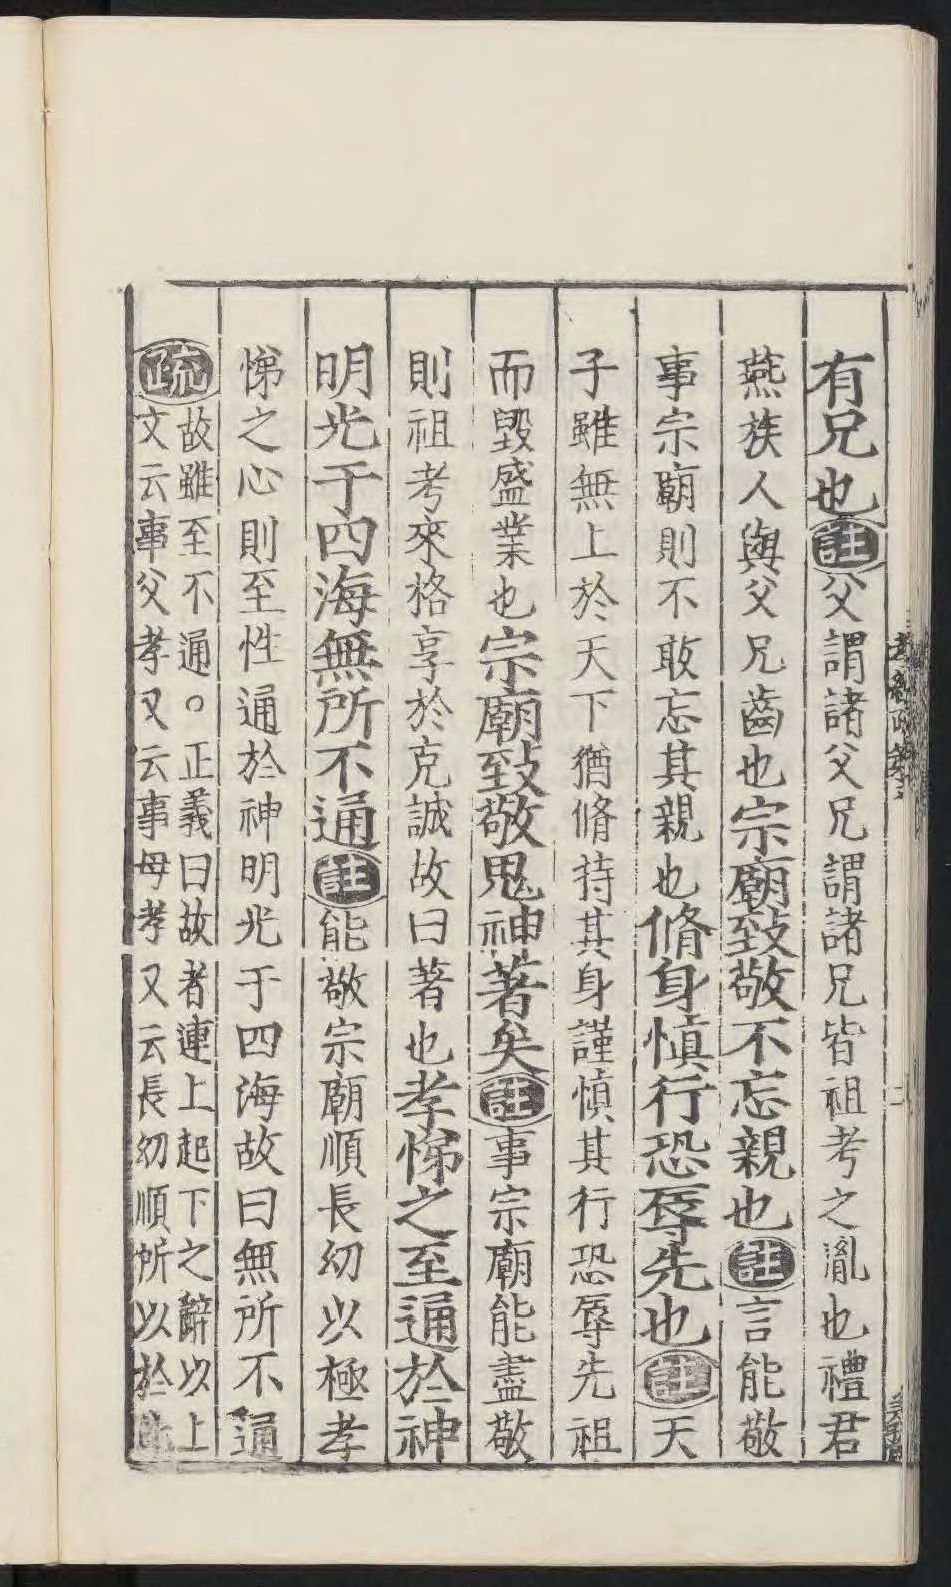 有兄也註父謂諸父兄謂諸兄皆祖考之胤也禮君
燕族人與父兄齒也宗廟致敬不忘親也註言能敬
事宗廟則不敢忘其親也脩身慎行恐辱先也註天
子雖無上於天下猶脩持其身謹慎其行恐辱先祖
而毀盛業也宗廟致敬鬼神著矣註事宗廟能盡敬
則祖考來格享於克誠故曰著也孝悌之至通於神
明光于四海無所不通註能敬宗廟順長幼以極孝
悌之心則至性通於神明光于四海故曰無所不通
疏故雖至不通○正義曰故者連上起下之辭以上
文云事父孝又云事母孝又云長幼順所以於此